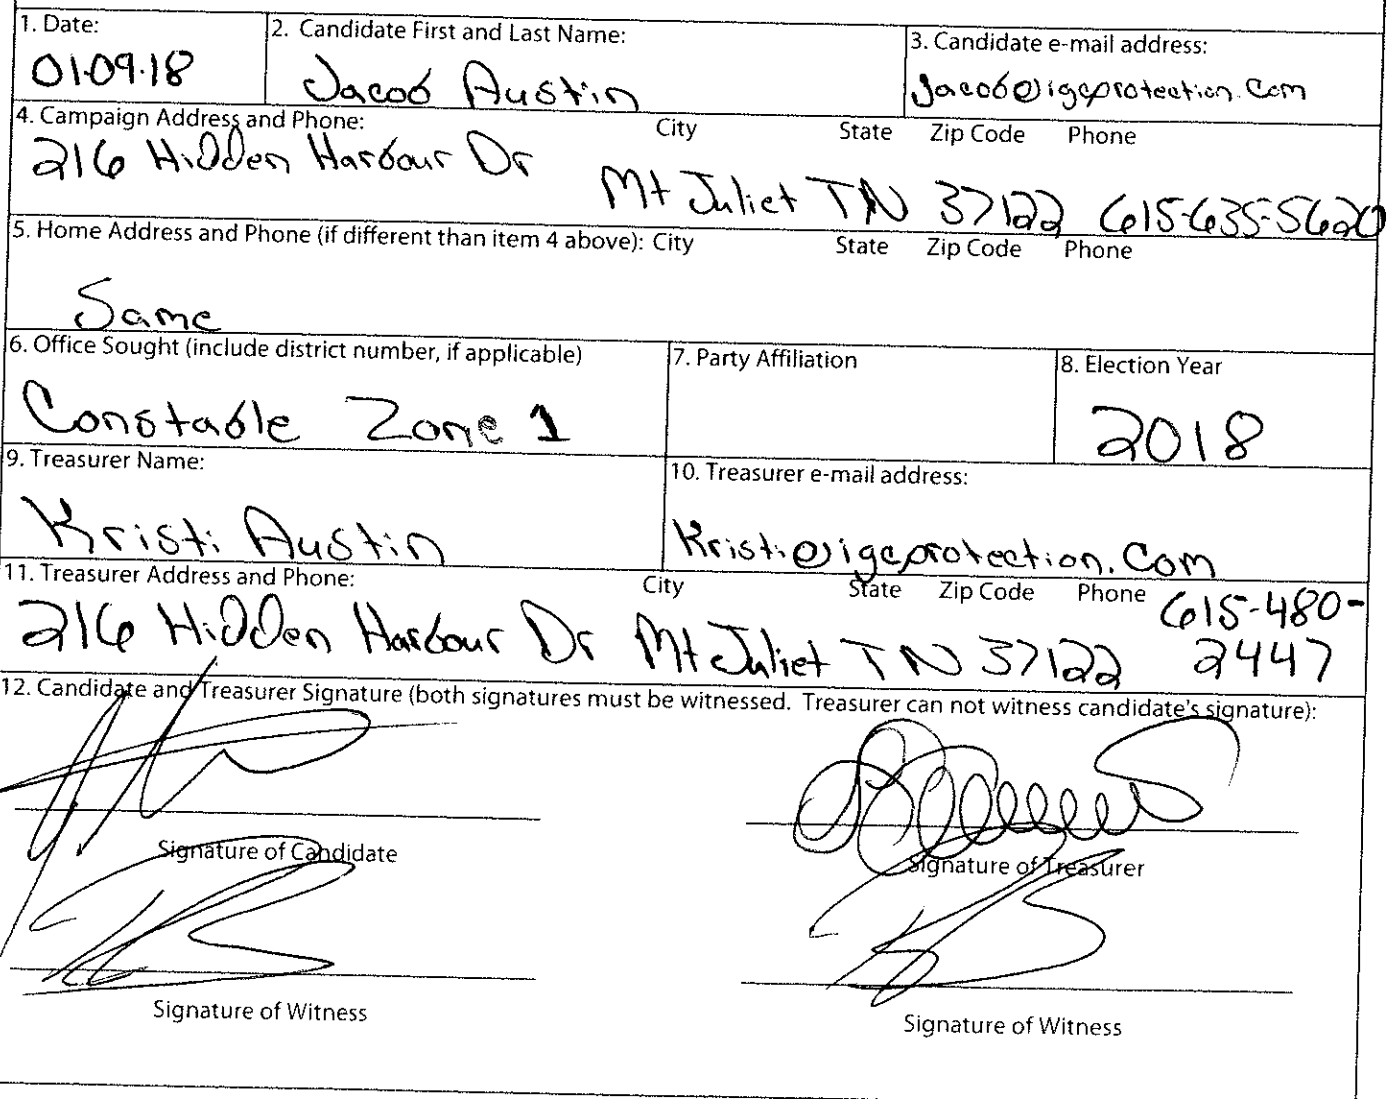 1. Date:
01-09-18
2. Candidate First and Last Name:
Jacob Austin
3. Candidate e-mail address:
Jacob@igcprotection.com
4. Campaign Address and Phone: City State Zip Code Phone
216 Hidden Harbour Dr
Mt Juliet TN 37122 615-635-5620
5. Home Address and Phone (if different than item 4 above): City State Zip Code Phone
Same
6. Office Sought (include district number, if applicable)
Constable Zone 1
7. Party Affiliation
8. Election Year
2018
9. Treasurer Name:
Kristi Austin
10. Treasurer e-mail address:
Kristi@igcprotection.com
11. Treasurer Address and Phone: City State Zip Code Phone 615-480-
216 Hidden Harbour Dr Mt Juliet TN 37122 2447
12. Candidate and Treasurer Signature (both signatures must be witnessed. Treasurer can not witness candidate's signature):
Signature of Candidate
Signature of Treasurer
Signature of Witness
Signature of Witness